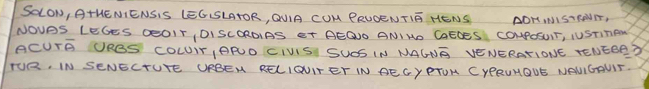 SOLON, ATHENIENSIS LEGISLATOR, QUIA CUM PRUDENTIĀ MENS ADMINISTRAVIT,
NOVAS LEGES DEDIT, DISCORDIAS ET AEQUO ANIMO CAEDES COMPOSUIT, IUSTITIAM
ACUTĀ URBS COLUIT, APUD CIVIS SUOS IN MAGNĀ VENERATIONE TENEBA
TUR. IN SENECTUTE URBEM RELIQUIT ET IN AEGYPTUM CYPRUMQUE NAVIGAVIT